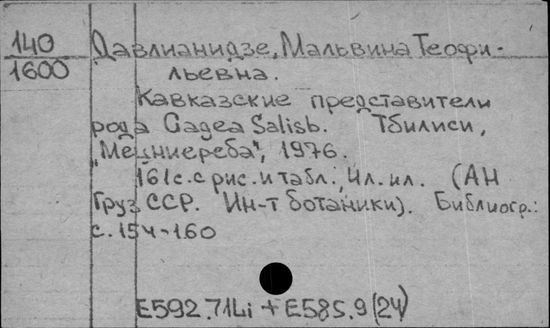 140
1600
Давлианидзе, Мальвина Теофи-
льевна.
Кавказские представители
рода Gagea Salisb. Тбилиси,
"Мецниереба", 1976.
161с. с рис. и табл.; 4л. ил. (АН
Груз ССР. Ин-т ботаники). Библиогр.:
с. 154-160
E592.71Li + E585.9(24)